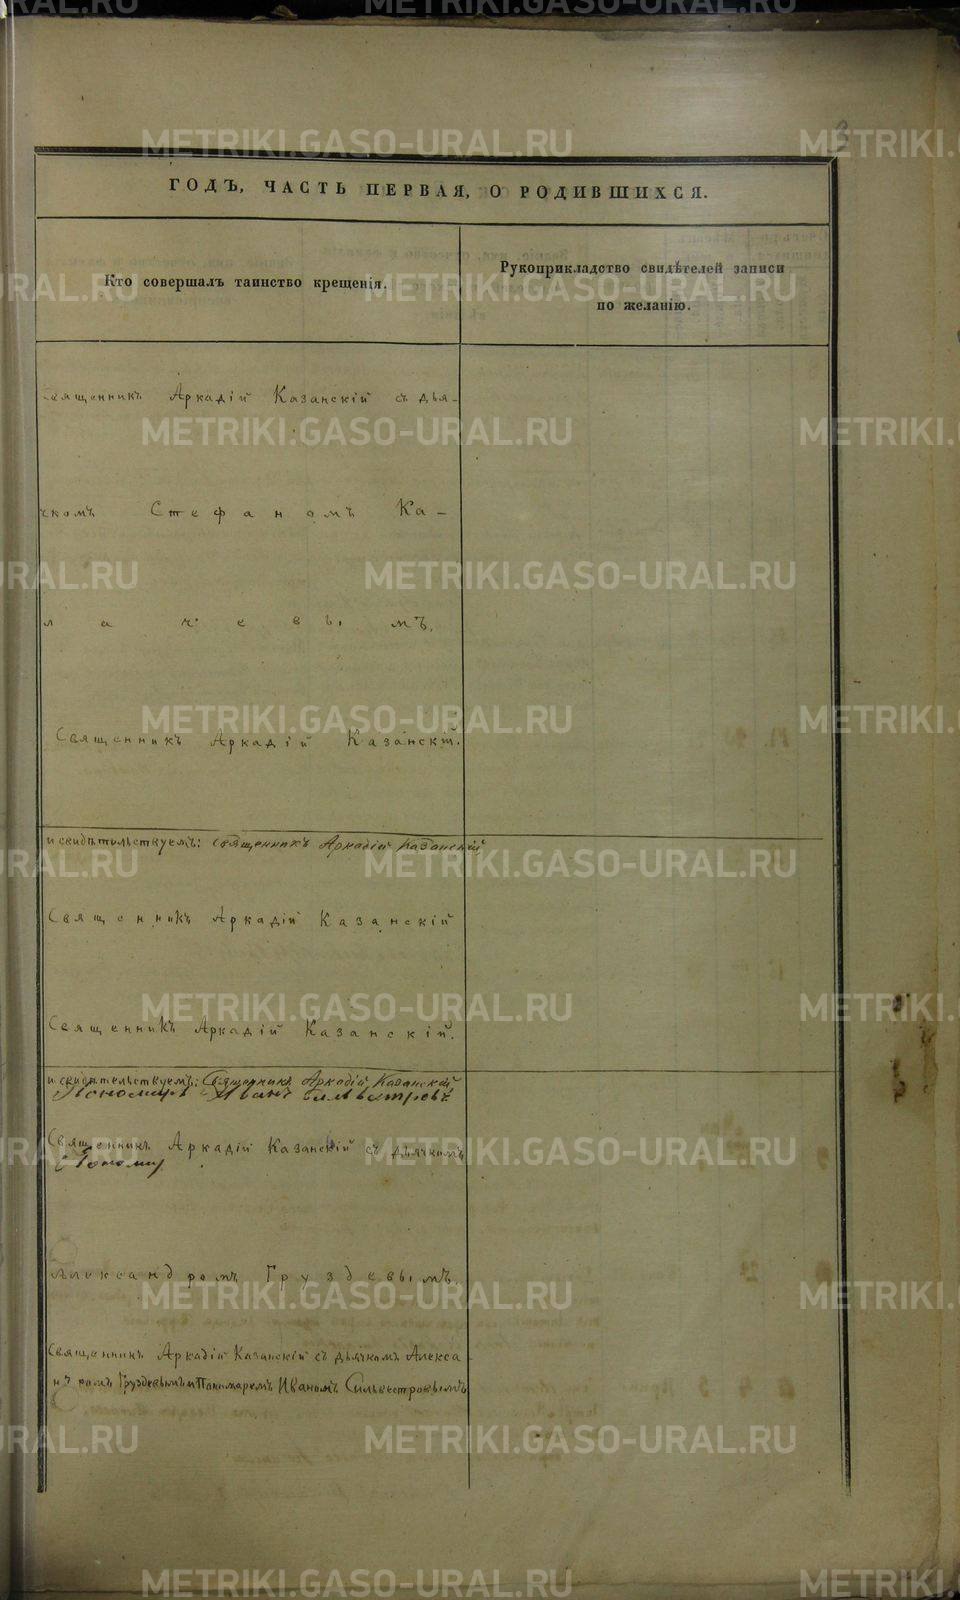 3
ГОДЪ, ЧАСТЬ ПЕРВАЯ, О РОДИВШИХСЯ.
Кто совершалъ таинство крещенія.
Рукоприкладство свидѣтелей записи
по желанію.
Священникъ Аркадій Казанскій съ дья-
чкомъ Стефаномъ Ка-
лачевымъ.
Священникъ Аркадій Казанскій.
и свидѣтельствуемъ: Священникъ Аркадій Казанскій
Священникъ Аркадій Казанскій
Священникъ Аркадій Казанскій.
и свидѣтельствуемъ: Священникъ Аркадій Казанскій
Пономарь Иванъ Сильвестровъ.
Священникъ Аркадій Казанскій съ дьячкомъ
Александромъ Груздевымъ.
Священникъ Аркадій Казанскій съ дьячкомъ Алекса-
ндромъ Груздевымъ и Пономаремъ Иваномъ Сильвестровымъ
METRIKI.GASO-URAL.RU